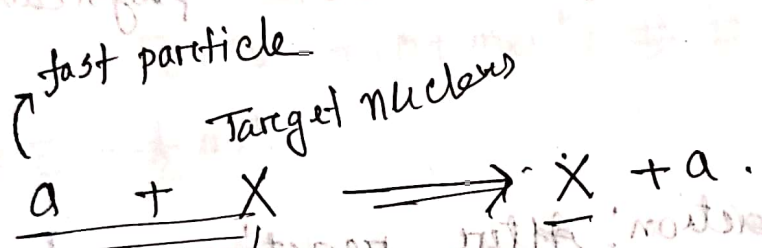 fast particle
Target nucleus
a + X ⟹ X + a .